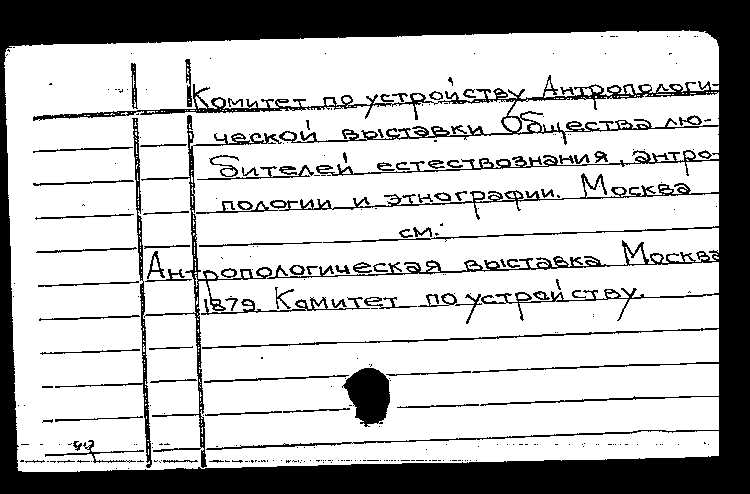 Комитет по устройству Антропологи-
ческой выставки Общества лю-
бителей естествознания, антро-
пологии и этнографии. Москва
см.:
Антропологическая выставка Москва
1879. Комитет по устройству.